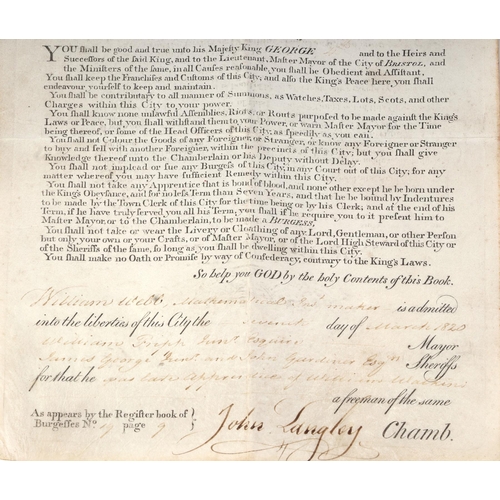 YOU shall be good and true unto his Majesty King GEORGE and to the Heirs and
Successors of the said King, and to the Lieutenant, Master Mayor of the City of BRISTOL, and
the Ministers of the same, in all Causes reasonable, you shall be Obedient and Assistant,
You shall keep the Franchises and Customs of this City, and also the King's Peace here, you shall
endeavour yourself to keep and maintain.
You shall be contributary to all manner of Summons, as Watches, Taxes, Lots, Scots, and other
Charges within this City to your power.
You shall know none unlawful Assemblies, Riots, or Routs purposed to be made against the King's
Laws or Peace, but you shall withstand them to your Power, or warn Master Mayor for the Time
being thereof, or some of the Head Officers of this City, as speedily as you can.
You shall not Colour the Goods of any Foreigner or Stranger, or know any Foreigner or Stranger
to buy and sell with another Foreigner, within the precincts of this City; but you shall give
Knowledge thereof unto the Chamberlain or his Deputy without Delay.
You shall not implead or sue any Burgess of this City, in any Court out of this City; for any
matter whereof you may have sufficient Remedy within this City.
You shall not take any Apprentice that is bond of blood, and none other except he be born under
the King's Obeysance, and for no less Term than Seven Years, and that he be bound by Indentures
to be made by the Town Clerk of this City for the time being or by his Clerk; and at the end of his
Term, if he have truly served you all his Term, you shall if he require you to it present him to
Master Mayor, or to the Chamberlain, to be made a BURGESS,
You shall not take or wear the Livery or Cloathing of any Lord, Gentleman, or other Person
but only your own, or your Crafts, or of Master Mayor, or of the Lord High Steward of this City or
of the Sheriffs of the same, so long as you shall be dwelling within this City.
You shall make no Oath or Promise by way of Confederacy, contrary to the King's Laws.
So help you GOD by the holy Contents of this Book.
William Webb Mathematical maker is admitted
into the liberties of this City the seventh day of March 1820
William Junr Esquire Mayor
James George Junr and John Gardiner Esqrs Sheriffs
for that he was late Apprentice of William
a freeman of the same
As appears by the Register book of
Burgesses No. page 9
John Langley Chamb.